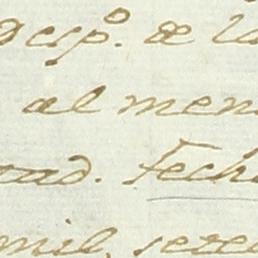 desp.º de la
al men
tad. Fech
mil, sete